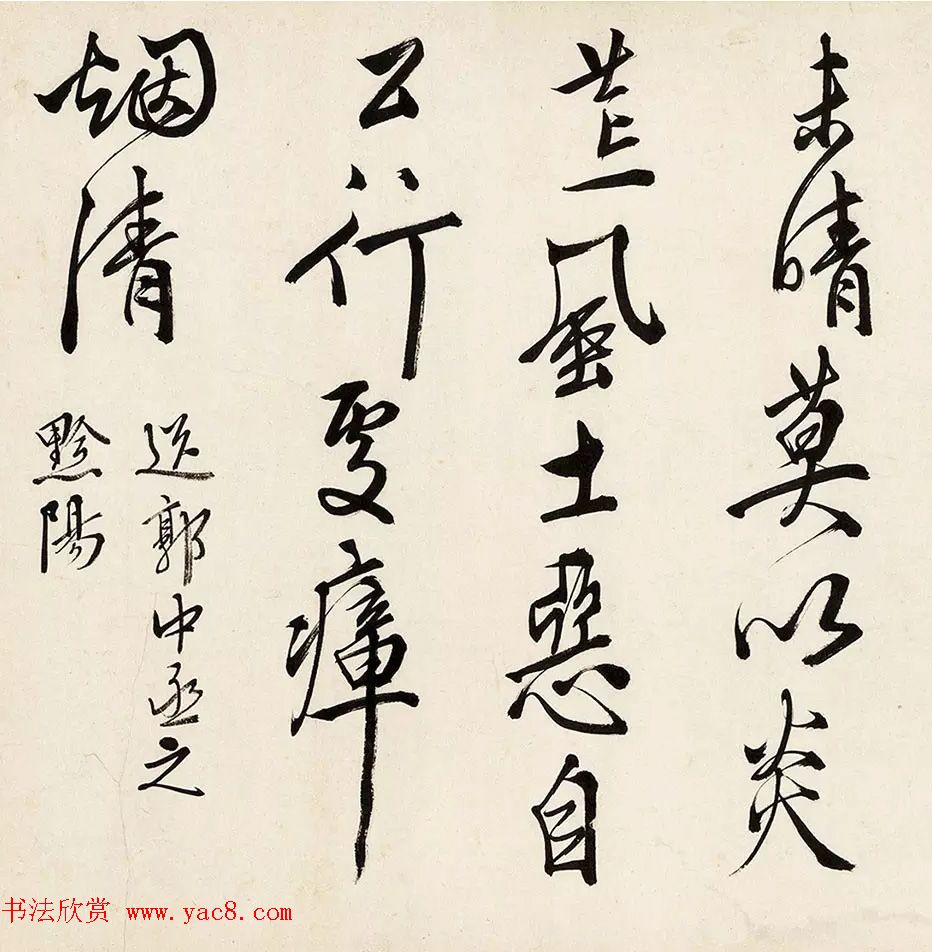 未晴莫以炎
荒風土惡自
公行處瘴
烟清
送郭中丞之
黔陽
书法欣赏 www.yac8.com